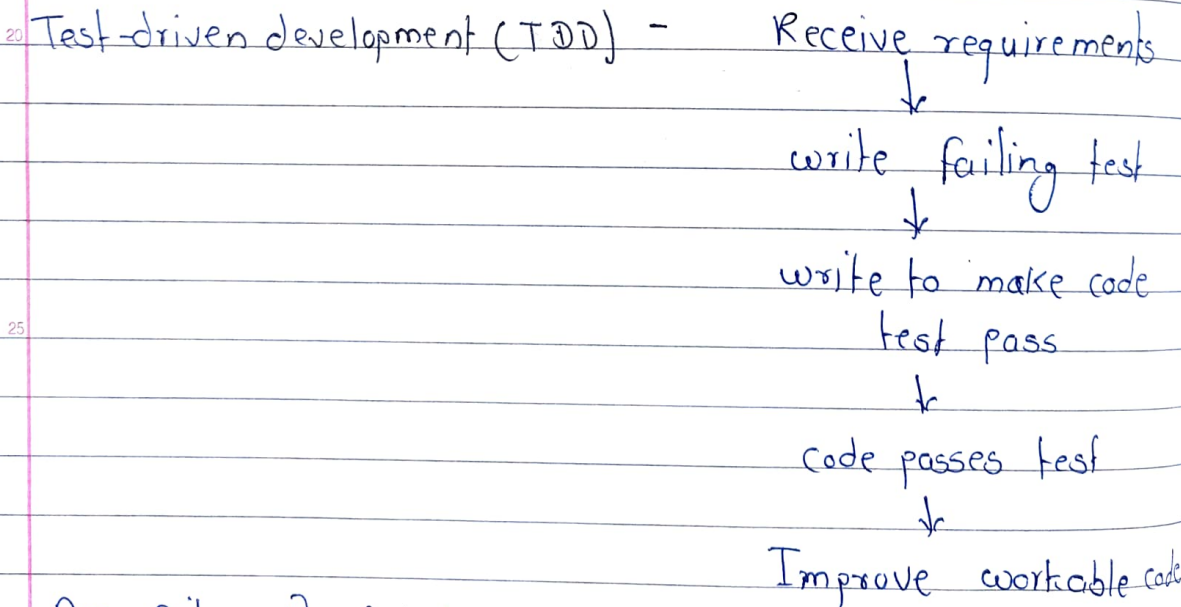 20 Test-driven development (TDD) - Receive requirements
↓
write failing test
↓
write to make code
25 test pass
↓
code passes test
↓
Improve workable code